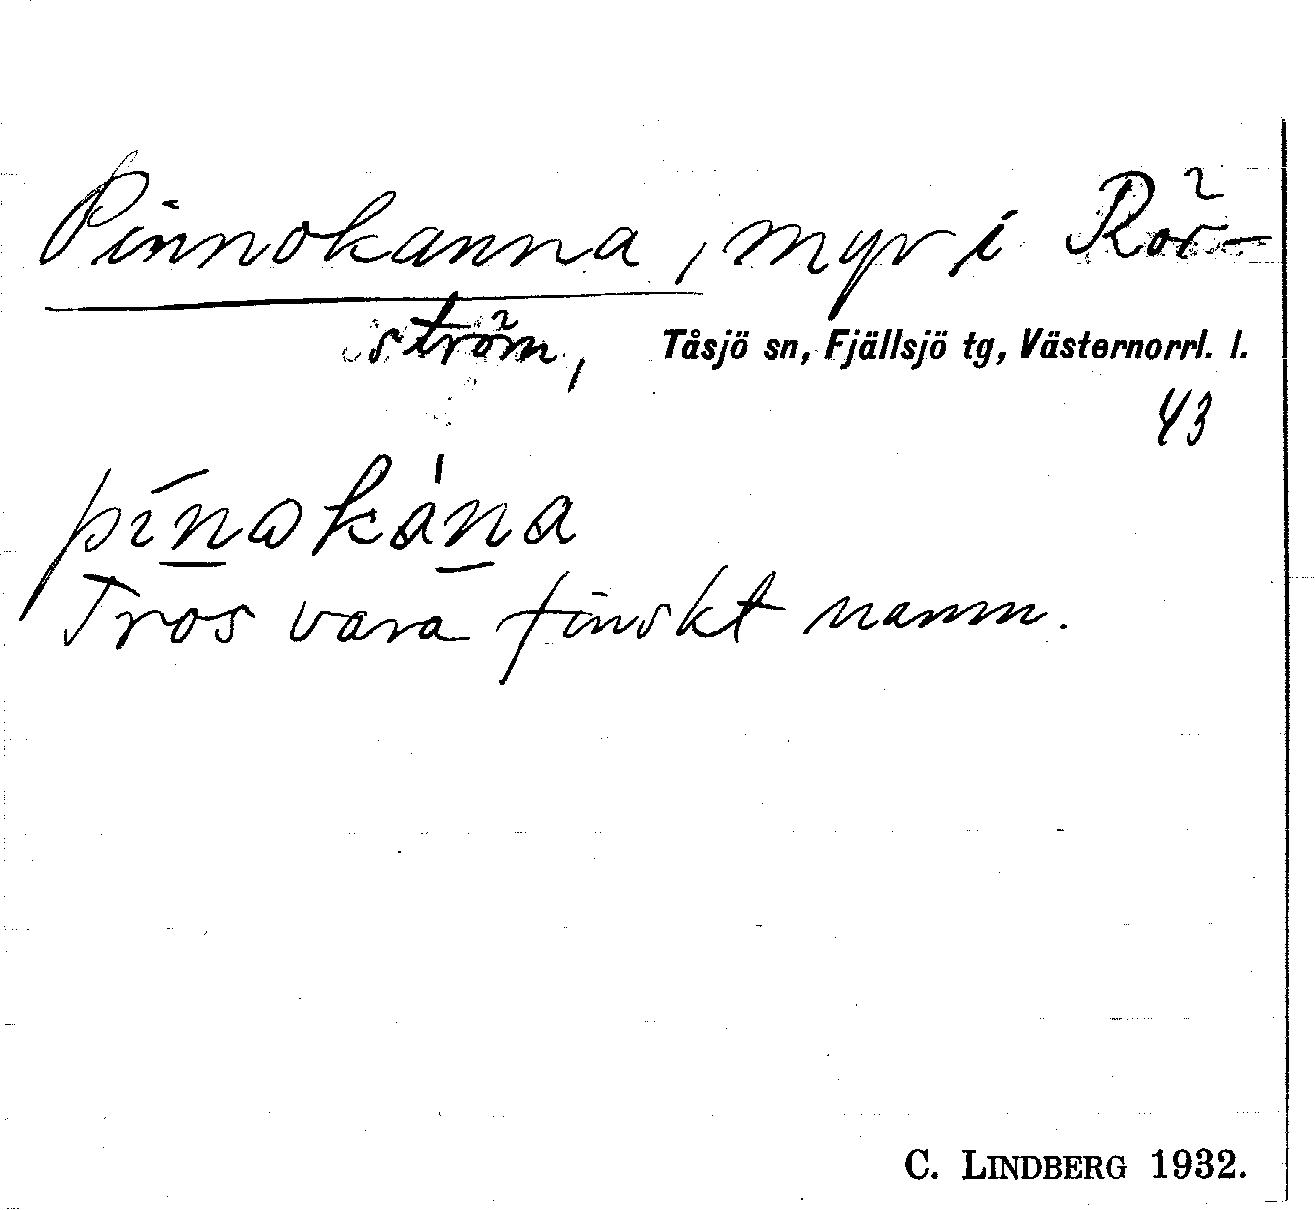 Pinnokanna, myr i Rör-
ström, Tåsjö sn, Fjällsjö tg, Västernorrl. l.
43
pı̄nωkána
Tros vara finskt namn.
C. LINDBERG 1932.